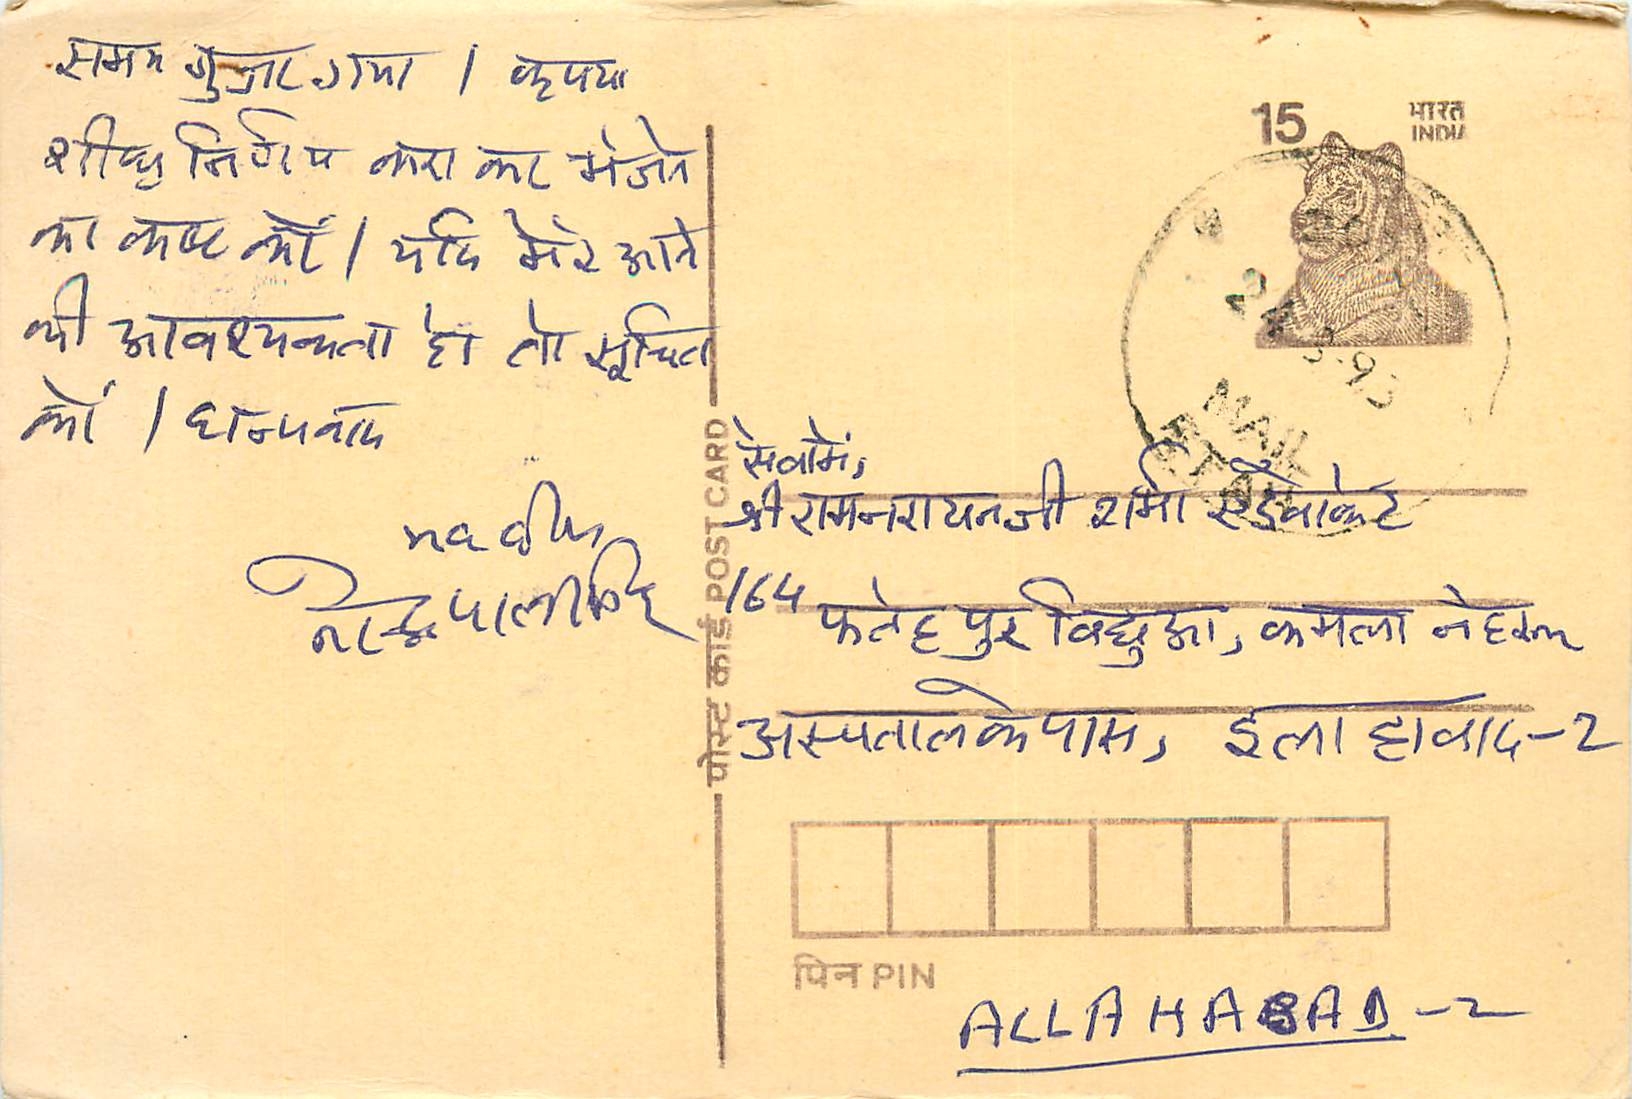 समय गुजर गया । कृपया
शीघ्र निर्णय करा कर भेजने
का कष्ट करें । यदि मेरे आने
की आवश्यकता हो तो सूचित
करें । धन्यवाद
भवदीय
पोस्ट कार्ड POST CARD
15
भारत
INDIA
24 3-93
MAIL
सेवामें,
श्री रामनरायनजी शर्मा एडवोकेट
164 फतेहपुर विछुआ, कमला नेहरू
अस्पताल के पास, इलाहावाद-2
पिन PIN
ALLAHABAD-2